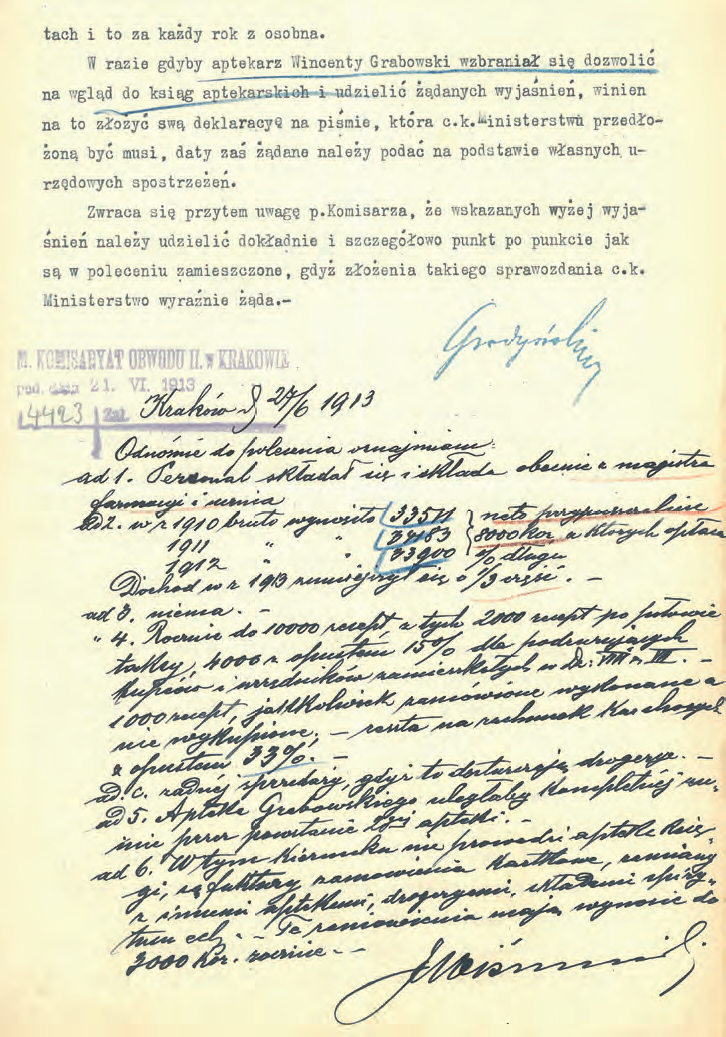 tach i to za każdy rok z osobna.
W razie gdyby aptekarz Wincenty Grabowski wzbraniał się dozwolić
na wgląd do ksiąg aptekarskich i udzielić żądanych wyjaśnień, winien
na to złożyć swą deklaracyę na piśmie, która c.k.Ministerstwu przedło-
żoną być musi, daty zaś żądane należy podać na podstawie własnych u-
rzędowych spostrzeżeń.
Zwraca się przytem uwagę p.Komisarza, że wskazanych wyżej wyja-
śnień należy udzielić dokładnie i szczegółowo punkt po punkcie jak
są w poleceniu zamieszczone, gdyż złożenia takiego sprawozdania c.k.
Ministerstwo wyraźnie żąda.-
M. KOMISARYAT OBWODU II. w KRAKOWIE
pod dniem 21. VI. 1913
4423 Zał.
Kraków d 24/6 1913
Odnośnie do polecenia oznajmiam:
ad 1. Personal składał się i składa obecnie z magistra
farmacyi i ucznia
ad 2. w r 1910 bruto wynosiło 33511 netto przypuszczalnie
1911 " " 34183 8000 kor, z których opłaca
1912 " " 33900 % długu
Dochód w r. 1913 zmniejszył się o 1/3 część. -
ad 3. niema. -
" 4. Rocznie do 10000 recept z tych 2000 recept po połowie
taksy, 4000 z opustem 15% dla
kupców i urzędników zamieszkałych w Dz. VIII i VII. -
1000 recept, jakkolwiek zamówione wykonane a
nie wykupione. - reszta na rachunek Kas chorych
z opustem 33%. -
ad. c. żadnej sprzedaży, gdyż to dostarczają drogerye. -
ad 5. Apteka Grabowskiego uległaby kompletnej ru-
inie przez powstanie tej apteki. -
ad 6. W tym kierunku nie prowadzi apteka księ-
gi, są faktury, zamówienia kartkowe, zamiany
z innemi aptekami, drogeryami, składami spiry-
tusu - Te zamówienia mają wynosić do
3000 kor. rocznie. -